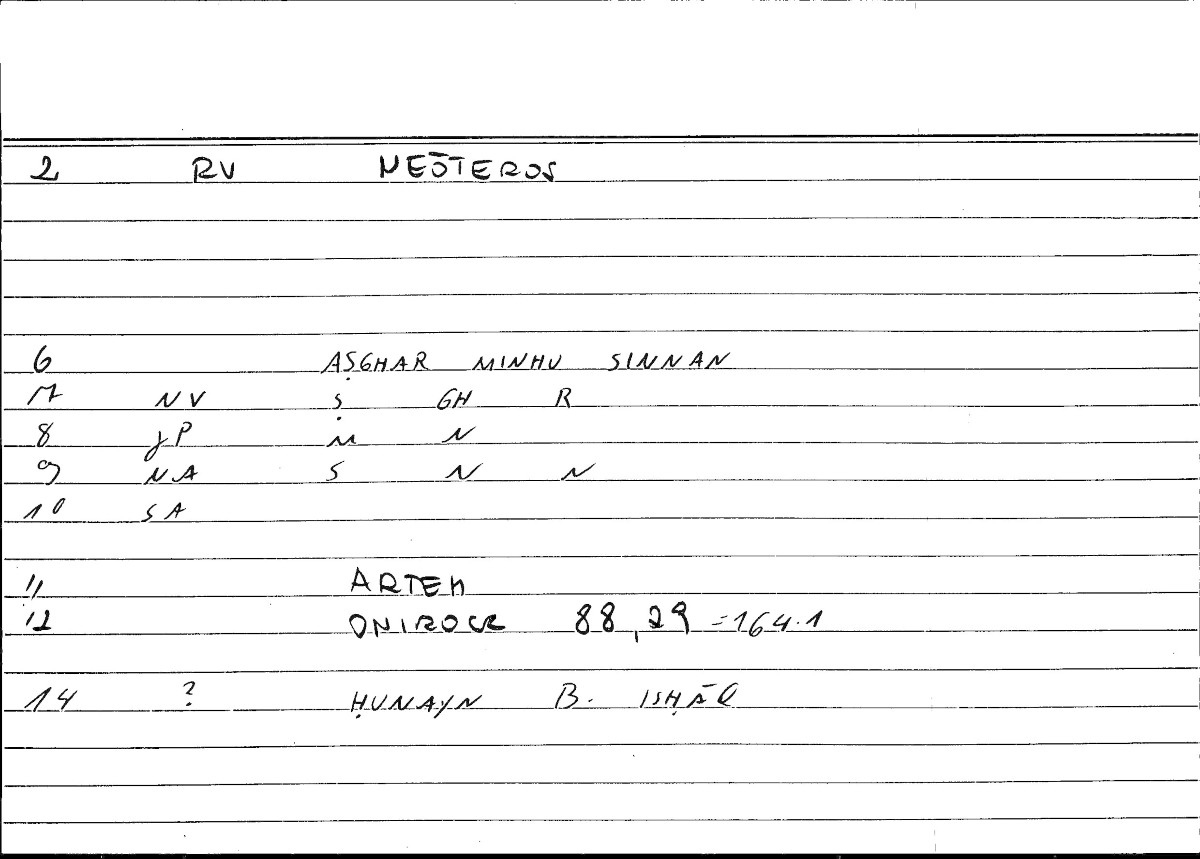 2 RV NEŌTEROS
6 AṢGHAR MINHU SINNAN
7 NV Ṣ GH R
8 JP M N
9 NA S N N
10 SA
11 ARTEM
12 ONIROCR 88,29 =164.1
14 ? ḤUNAYN B. ISḤĀQ